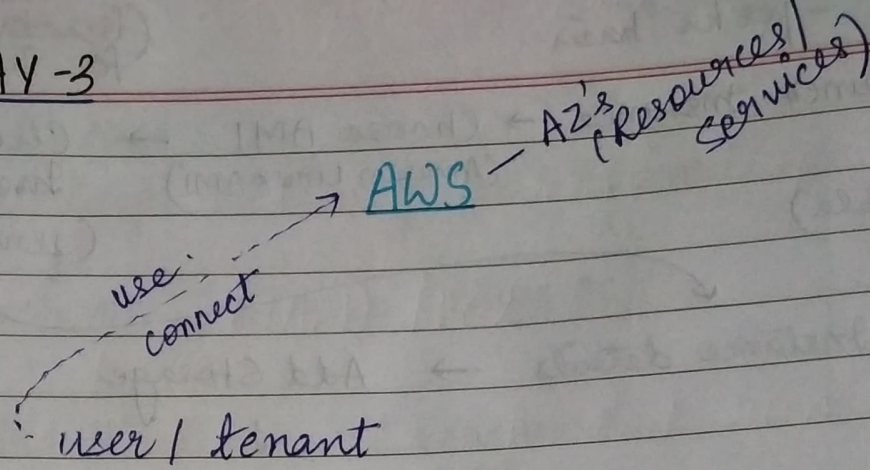 AY-3
AZ's
(Resources/
services)
AWS
use
connect
user / tenant